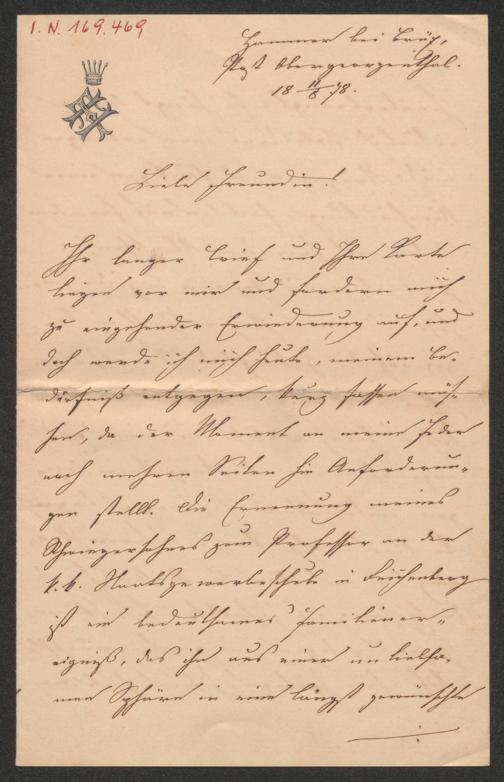 I. N. 169.469
Hammer bei Brüx,
Post Obergeorgenthal.
18 11/8 78.
Liebe Freundin!
Ihr langer Brief und Ihre Karte
liegen vor mir und fordern mich
zu eingehender Erwiederung auf, und
doch werde ich mich heute, meinem Be-
dürfniß entgegen, kurz fassen müs-
sen, da der Moment an meine Feder
nach mehren Seiten hin Anforderun-
gen stellt. Die Ernennung meines
Schwiegersohnes zum Professor an der
k. k. Staatsgewerbeschule in Reichenberg
ist ein bedeutsames Familiener-
eigniß, das ihn aus einer unliebsa-
men Sphäre in eine längst gewünschte